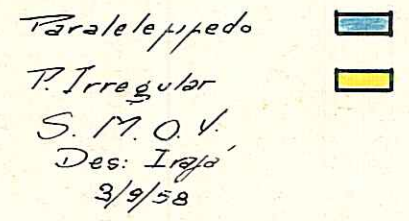 Paralelepípedo
P. Irregular
S. M. O. V.
Des: Irajá
3/9/58